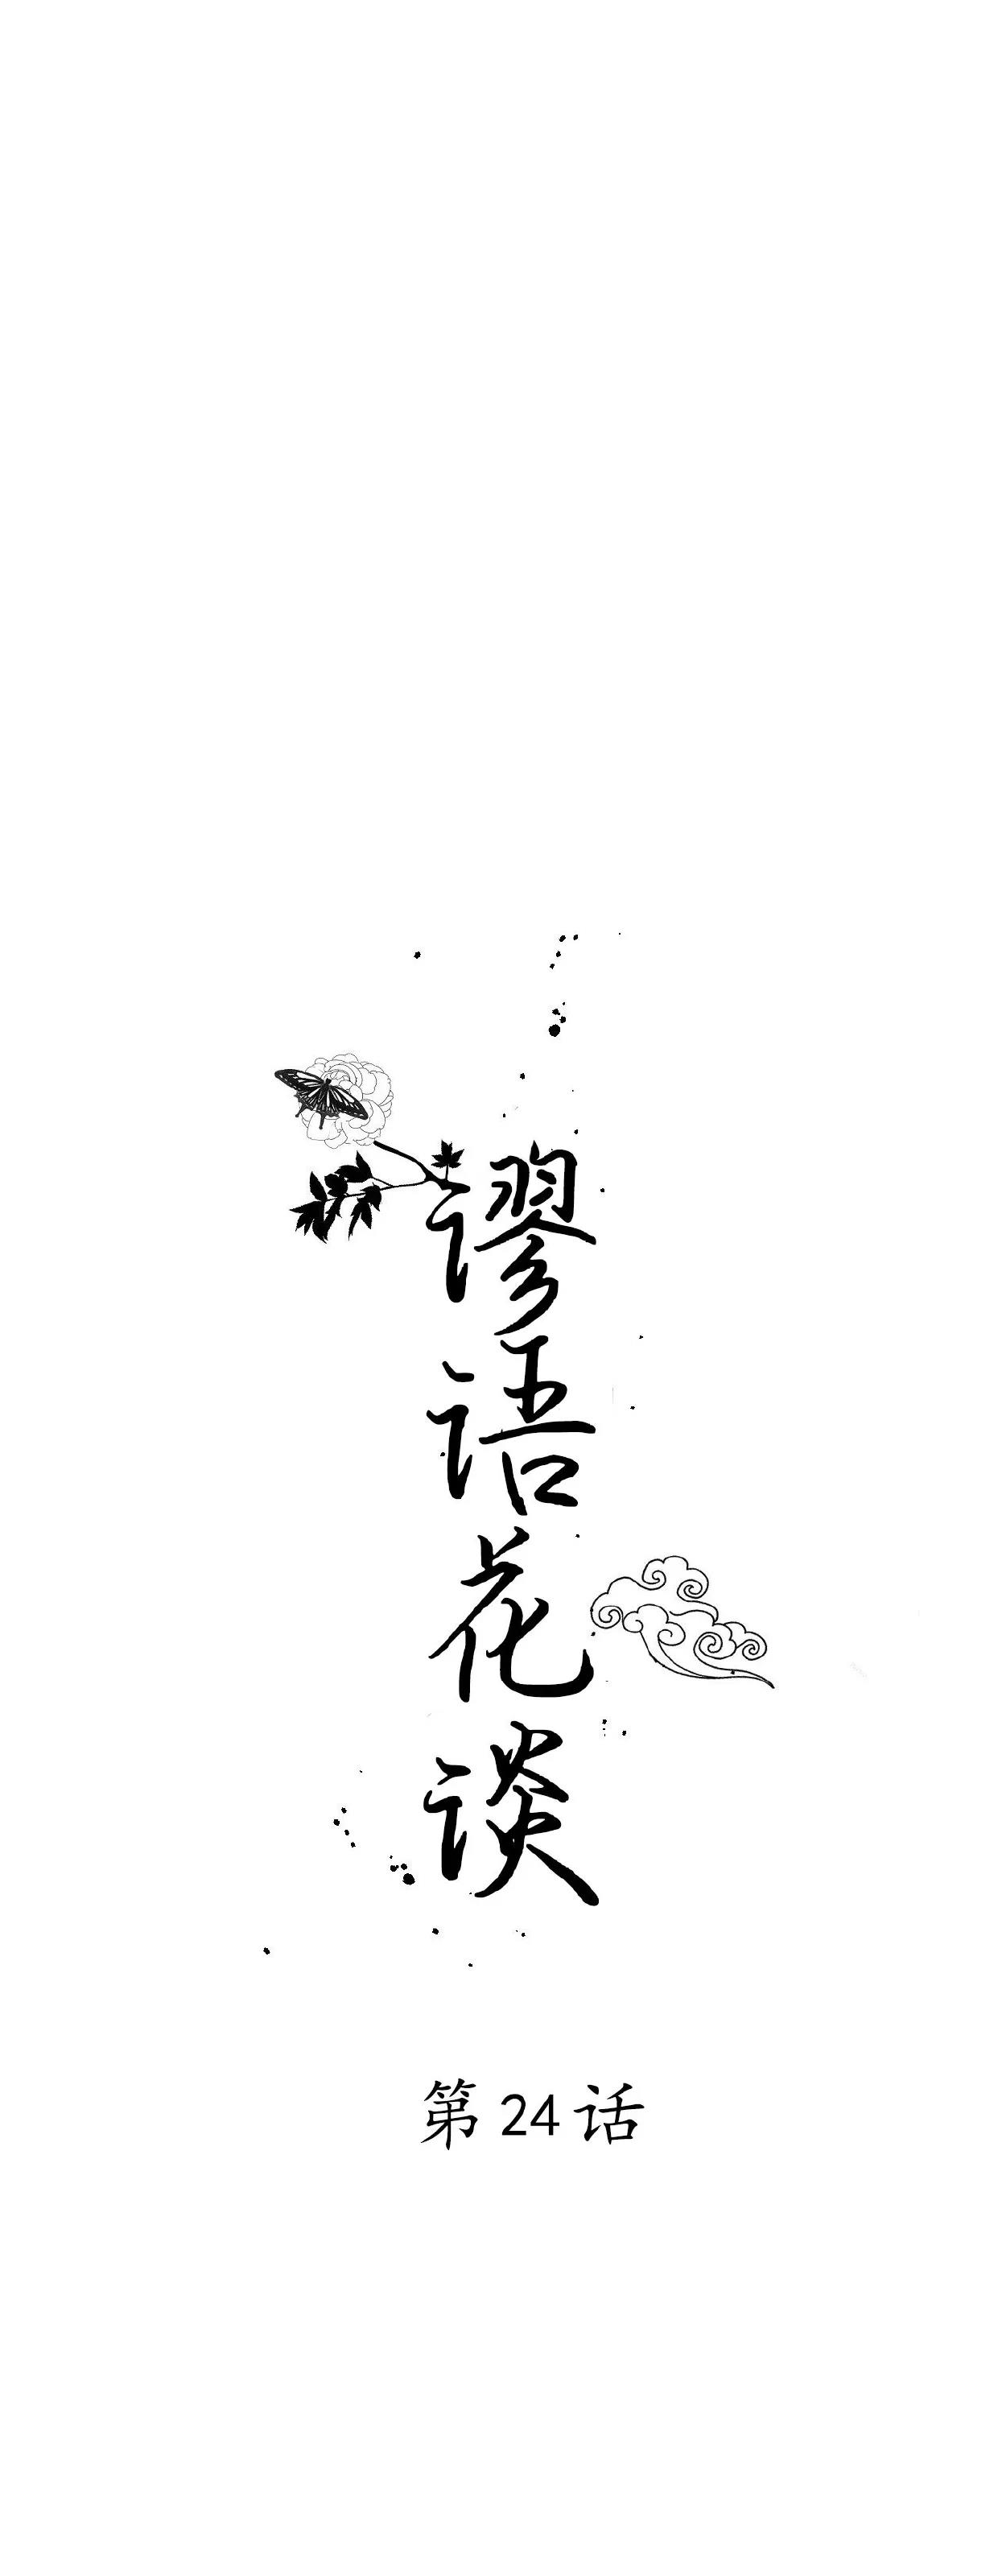 谬语花谈
第24话